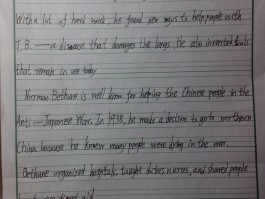 With a lot of hard work, he found new ways to help people with
T.B. — a disease that damages the lungs. He also invented tools
that remain in use today
Norman Bethune is well know for helping the Chinese people in the
Anti—Japanese War. In 1938, he made a decision to go to northern
China because he knew many people were dying in the war.
Bethune organized hospitals, taught doctors, nurses, and showed people